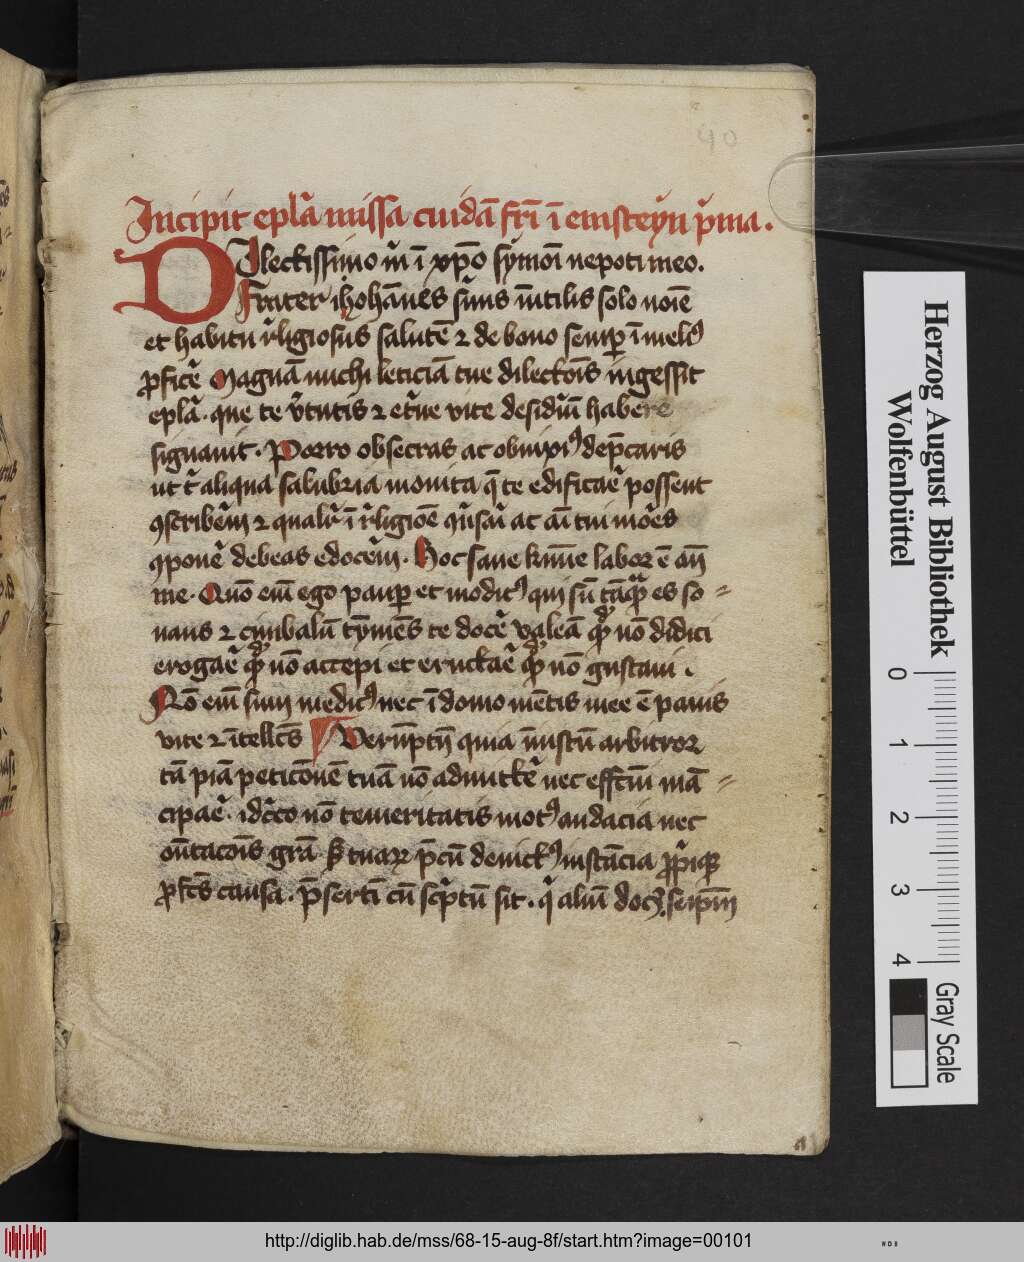 40
Incipit epl̄a missa cuidā fr̄i ī emsteyn p̄ma.
Dilectissimo in ī xp̄o symoī nepoti meo.
Frater ihohānes suus inutilis solo noīe
et habitu r̄ligiosus salutē ⁊ de bono semꝑ ī meliꝰ
ꝓficē Magnā michi leticiā tue dilectōis ingessit
epl̄a. que te v̄tutis ⁊ et̄ne vite desid̄iū habere
signauit. Porro obsecras ac obnixiꝰ dep̄caris
ut t̄ aliqua salubria monita q̄ te edificar̄e possent
ꝯscriberē ⁊ qualit̄ ī r̄ligiōe ꝯuersari ac cū tui mor̄es
ꝯponer̄ debeas edocer̄em. Hoc sane labor ē an̄
me. Quō em̄ ego pauꝑ et modicꝰ qui sū tāq̄ es so-
nans ⁊ cimbalū tȳniēs te docer̄ valeā qd̄ nō didici
erogar̄e qd̄ nō accepi et eructar̄e qd̄ nō gustaui.
Nō em̄ sum medicꝰ nec ī domo mētis mee ē panis
vite ⁊ ītellc̄s Verūptn̄ quia īiustū arbitror
tā piā peticōnē tuā nō admitter̄ nec effcm̄ mā-
cipar̄e. idc̄co nō temeritatis motꝰ audacia nec
on̄tacōis grā. s; tuaꝝ p̄cū deuictꝰ instācia
ꝓfc̄s causa. p̄sertī cū sc̄ptū sit. q̄ aliū docꝫ. seip̄m
Herzog August Bibliothek
Wolfenbüttel
0 1 2 3 4
Gray Scale
http://diglib.hab.de/mss/68-15-aug-8f/start.htm?image=00101
WDB